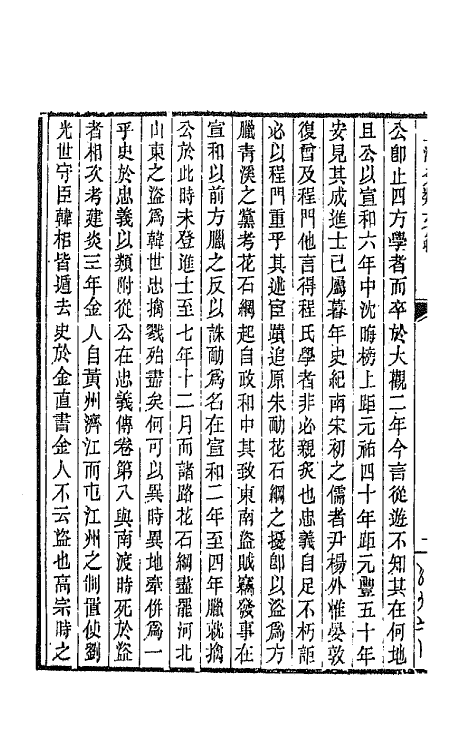 公卽止四方學者而卒於大觀二年今言從遊不知其在何地
且公以宣和六年中沈晦榜上距元祐四十年距元豐五十年
安見其成進士已屬暮年史紀南宋初之儒者尹楊外惟晏敦
復曾及程門他言得程氏學者非必親炙也忠義自足不朽詎
必以程門重乎其述宦蹟追原朱勔花石綱之擾卽以盜爲方
臘靑溪之黨考花石綱起自政和中其致東南盜賊竊發事在
宣和以前方臘之反以誅勔爲名在宣和二年至四年臘就擒
公於此時未登進士至七年十二月而諸路花石綱盡罷河北
山東之盜爲韓世忠擒戮殆盡矣何可以異時異地牽倂爲一
乎史於忠義以類附從公在忠義傳卷第八與南渡時死於盜
者相次考建炎三年金人自黃州濟江而屯江州之側置使劉
光世守臣韓梠皆遁去史於金直書金人不云盜也高宗時之